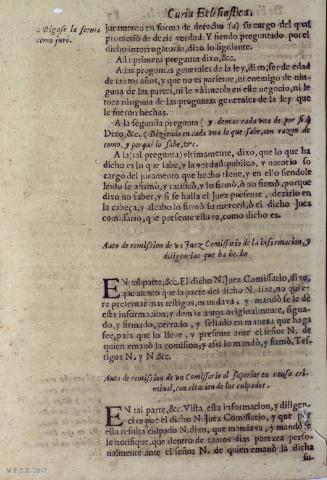 Curia Eclesiastica,
a Digase la forma
como jurò.
juramento en forma de derecho (a) su cargo del qual
prometiò de dezir verdad. Y siendo preguntado por el
dicho interrogatorio, dixo lo siguiente.
A la primera pregunta dixo, &c.
A las preguntas generales de la ley, dixo, ser de edad
de tantos años, y que no es pariente, ni enemigo de nin-
guna de las partes, ni le và interès en este negocio, ni le
toca ninguna de las preguntas generales de la ley que
le fueron hechas.
A la segunda pregunta (y demàs cada una de por si)
Dixo, &c. (Diziendo en cada una lo que sabe, con razon de
como, y porquè lo sabe, &c.
A la (tal pregunta) ultimamente, dixo, que lo que ha
dicho es lo que sabe, y la verdad publico, y notorio so
cargo del juramento que hecho tiene, y en ello siendole
leìdo se afirmò, y ratificò, y lo firmò, ò no firmò, porque
dixo no saber, y si se halla el Juez presente, dezirlo en
la cabeça, y al cabo lo firmò su merced, ò el dicho Juez
Comissario, que presente estava, como dicho es.
Auto de remission de un Juez Comissario de la informacion, y
diligencias que ha hecho
EN tal parte, &c. El dicho N. Juez Comissario, dixo,
que atento que la parte del dicho N. dize, no quie-
re presentar mas testigos, mandava, y mandò se le dè
esta informacion, y demàs autos originalmente, signa-
do, y firmado, cerrado, y sellado en manera que haga
fee, para que lo lleve, y presente ante el señor N. de
quien emanò la comision, y assi lo mandò, y firmò, Tes-
tigos N. y N &c.
Auto de remission de un Comissario al superior en causa cri-
minal, con citacion de los culpados.
EN tal parte, &c. Vista esta informacion, y diligen-
cias por el dicho N. Juez Comissario, y que por
ella resulta culpado N. dixo, que mandava, y mandò se
le notifique, que dentro de tantos dias parezca perso-
nalmente ante el señor N. de quien emanò la dicha
su
M.E.C.D. 2017